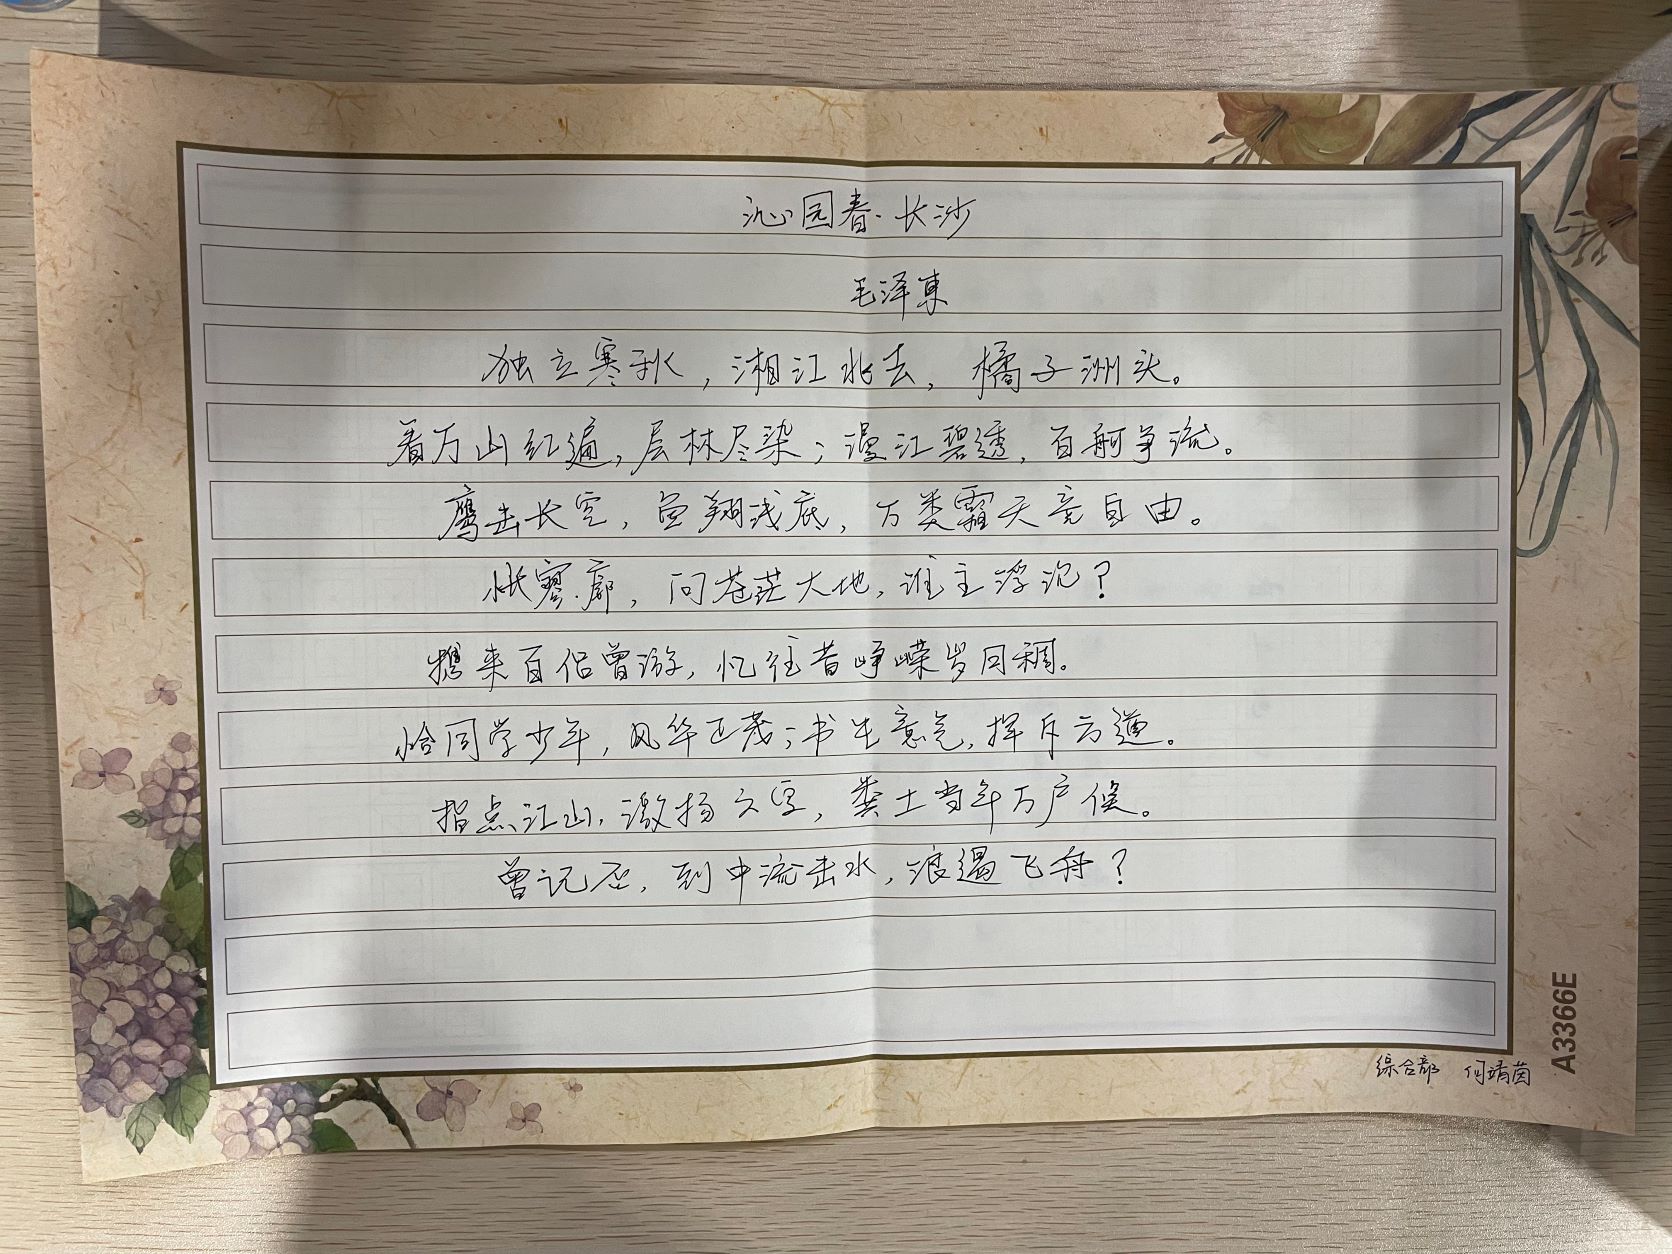 沁园春·长沙
毛泽东
独立寒秋，湘江北去，橘子洲头。
看万山红遍，层林尽染；漫江碧透，百舸争流。
鹰击长空，鱼翔浅底，万类霜天竞自由。
怅寥廓，问苍茫大地，谁主浮沉？
携来百侣曾游，忆往昔峥嵘岁月稠。
恰同学少年，风华正茂；书生意气，挥斥方遒。
指点江山，激扬文字，粪土当年万户侯。
曾记否，到中流击水，浪遏飞舟？
综合部 何靖茵
A3366E